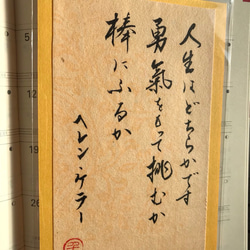 人生はどちらかです
勇氣をもって挑むか
棒にふるか
ヘレン・ケラー